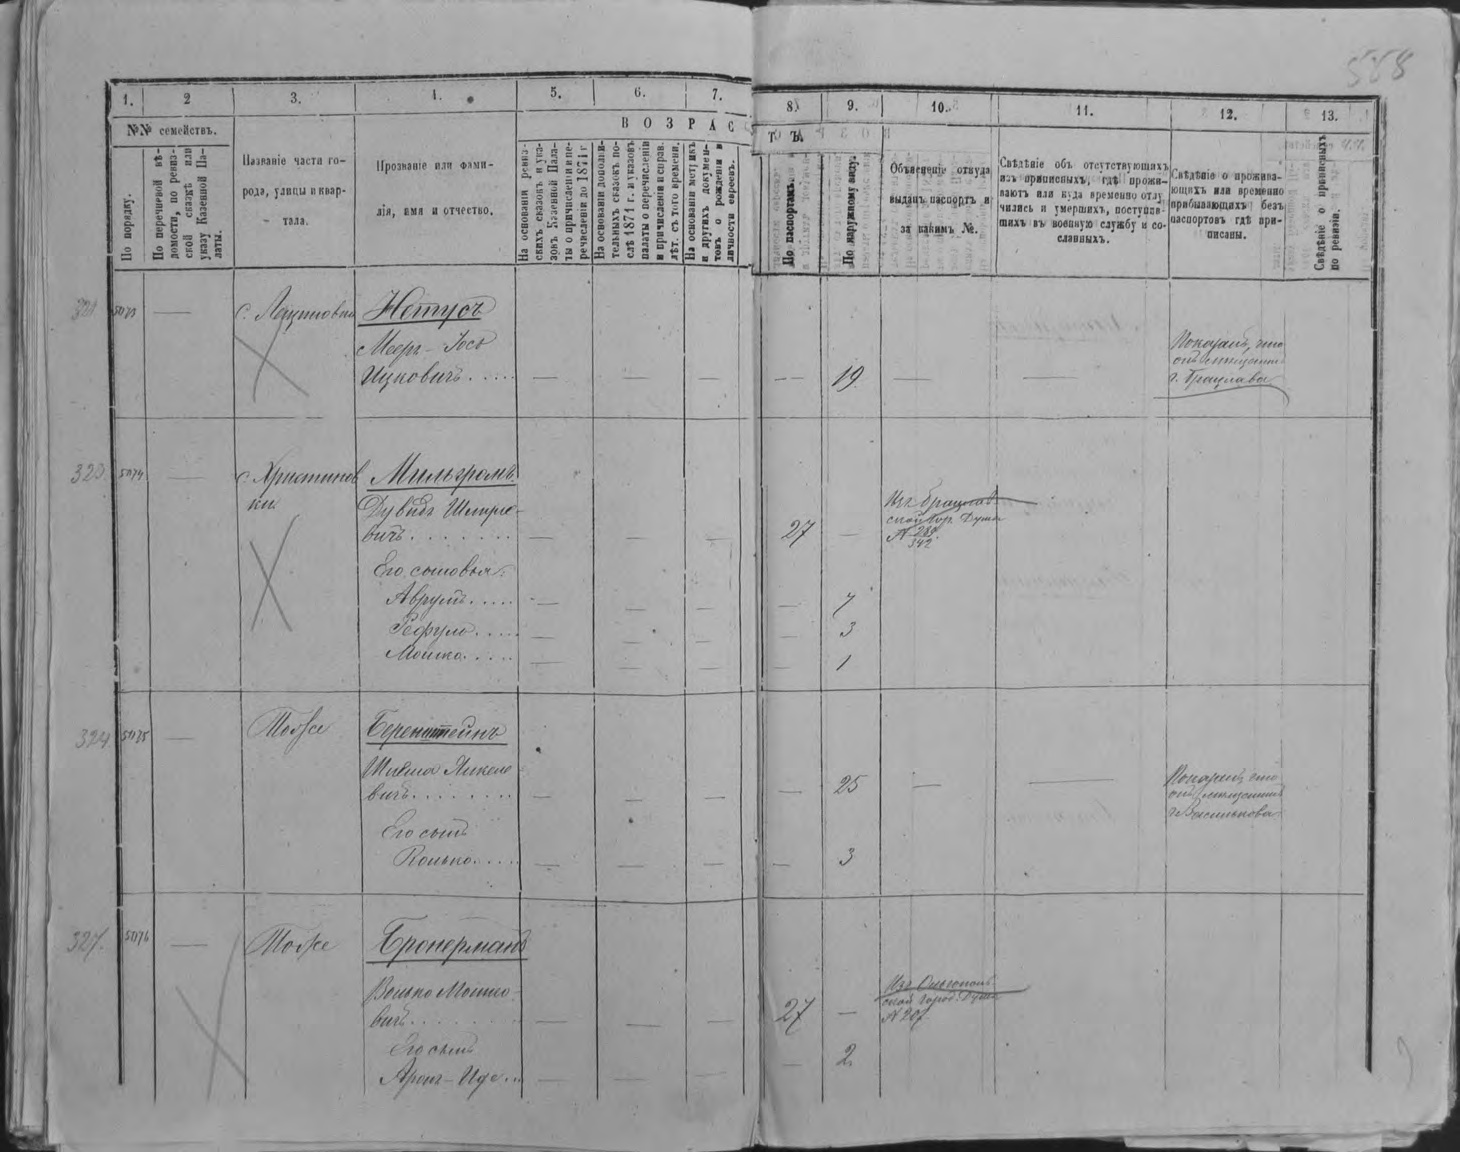 558
1. 2 3. 4. 5. 6. 7. 8) 9. 10. 11. 12. 13.
№№ семействъ.
ВОЗРАСТЪ.
По порядку.
По перечневой вѣ-
домости, по ревиз-
ской сказкѣ или
указу Казенной Па-
латы.
Названіе части го-
рода, улицы и квар-
тала.
Прозваніе или фами-
лія, имя и отчество.
На основаніи ревиз-
скихъ сказокъ и ука-
зовъ Казенной Пала-
ты о причисленіи и пе-
речисленіи до 1871 г.
На основаніи дополни-
тельныхъ сказокъ по-
слѣ 1871 г. и указовъ
палаты о перечисленіи
и причисленіи и справ.
лѣт. съ того времени.
На основаніи метрикъ
и другихъ докумен-
товъ о рожденіи и
личности евреевъ.
По паспортамъ.
По наружному виду.
Объясненіе откуда
выданъ паспортъ и
за какимъ №.
Свѣдѣніе объ отсутствующихъ
изъ приписныхъ, гдѣ прожи-
ваютъ или куда временно отлу-
чились и умершихъ, поступив-
шихъ въ военную службу и со-
сланныхъ.
Свѣдѣніе о прожива-
ющихъ или временно
прибывающихъ безъ
паспортовъ гдѣ при-
писаны.
Свѣдѣніе о приписныхъ
по ревизіи.
5073 —
Нетусъ
Мееръ - Іось
Ицковичъ . . . . . — — — — 19 — —
Показалъ, что
онъ мещанин
г. Брацлава
323 5074 — с. Христинов
ки.
Мильгромъ
Дувидъ
вичъ . . . . . . . — — — 27 —
Изъ Брацлав
ской Гор. Думы
№ 280
342
Его сыновья:
Аврумъ . . . . . — — — — 7
Рефуло . . . . . — — — — 3
Мошко . . . . . — — — — 1
324 5075 — Тоже
Беренштейнъ
вичъ . . . . . . . — — — — 25 — —
Показалъ что
онъ мещанинъ
г. Василькова
Его сынъ
. . . . . — — — — 3
327. 5076 — Тоже
Бронерманъ
Волько Мошко-
вичъ . . . . . . . — — — 27 —
Изъ Ольгополь
ской город. Думы
№ 207
Его сынъ
Аронъ - . . . — — — — 2